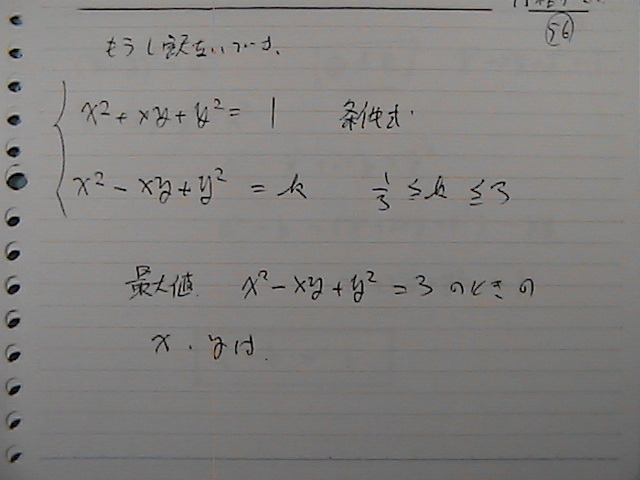 56
もう1度
x² + xy + y² = 1 条件式.
x² - xy + y² = k 1/3 ≤ k ≤ 3
最大値. x² - xy + y² = 3 のときの
x . y は.